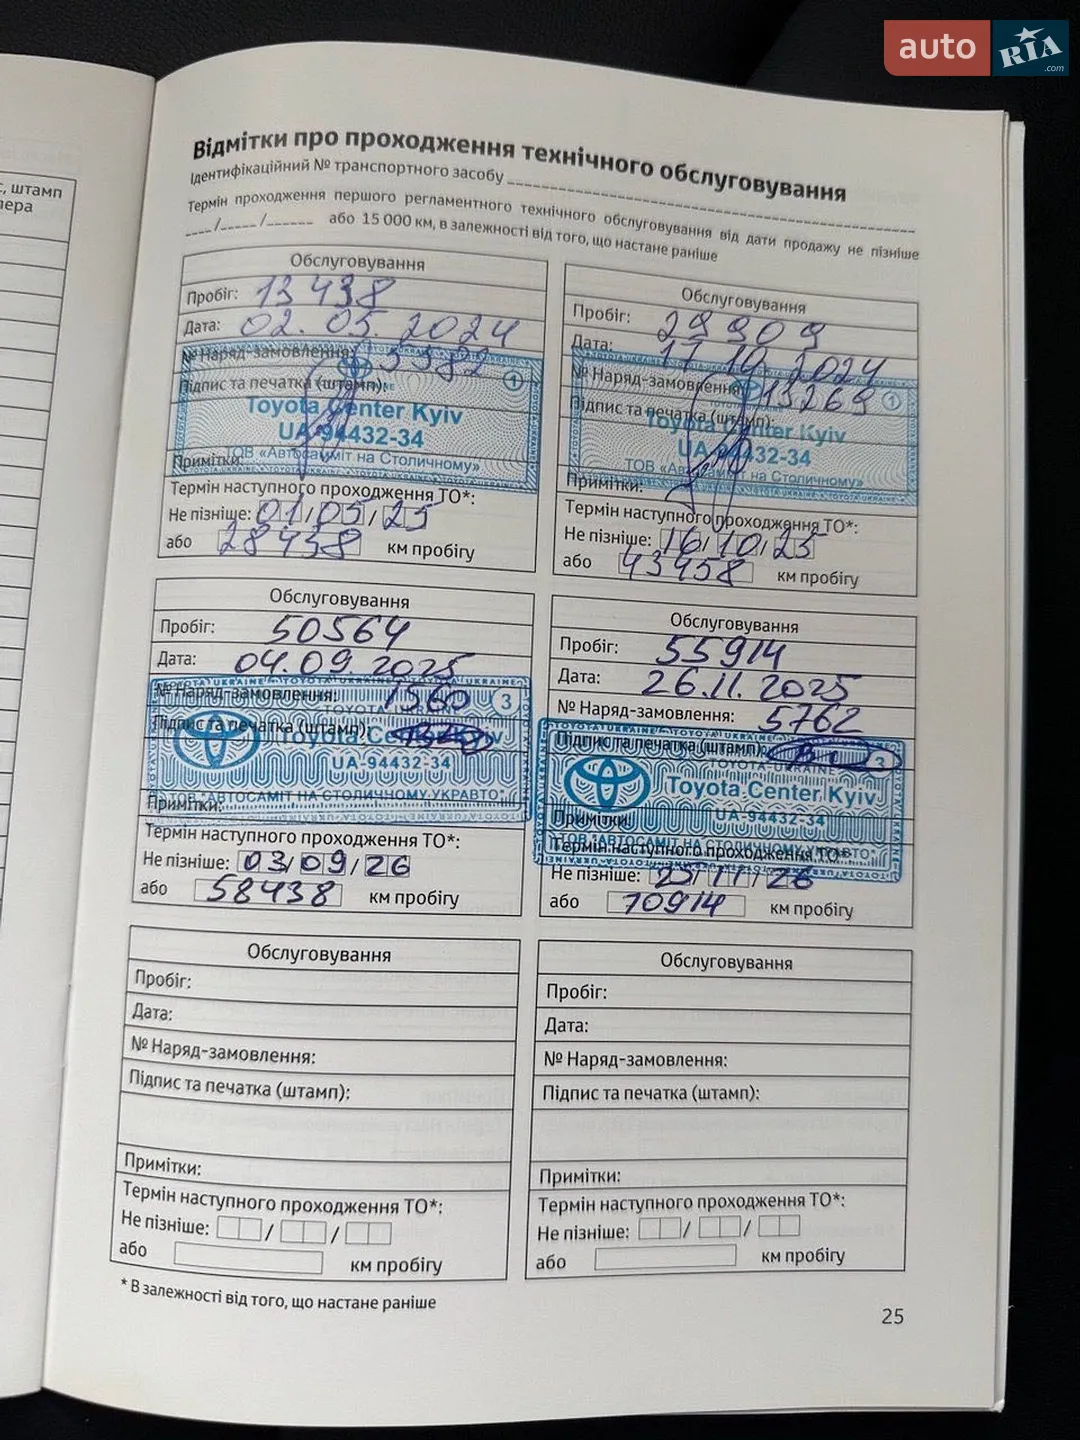 auto RIA.com
, штамп
лера
Відмітки про проходження технічного обслуговування
Ідентифікаційний № транспортного засобу
Термін проходження першого регламентного технічного обслуговування від дати продажу не пізніше
/ / або 15 000 км, в залежності від того, що настане раніше
Обслуговування
Пробіг: 13438
Дата: 02.05.2024
№ Наряд-замовлення: 3382
Підпис та печатка (штамп):
1
Toyota Center Kyiv
UA-94432-34
ТОВ «Автосаміт на Столичному»
Примітки:
Термін наступного проходження ТО*:
Не пізніше: 01/05/25
або 28438 км пробігу
Обслуговування
Пробіг: 29909
Дата: 17.10.2024
№ Наряд-замовлення: 13269
Підпис та печатка (штамп):
1
Toyota Center Kyiv
UA-94432-34
ТОВ «Автосаміт на Столичному»
Примітки:
Термін наступного проходження ТО*:
Не пізніше: 16/10/25
або 43458 км пробігу
Обслуговування
Пробіг: 50564
Дата: 04.09.2025
№ Наряд-замовлення: 1560
3
Підпис та печатка (штамп):
Toyota Center Kyiv
UA-94432-34
ТОВ "АВТОСАМІТ НА СТОЛИЧНОМУ УКРАВТО"
Примітки:
Термін наступного проходження ТО*:
Не пізніше: 03/09/26
або 58438 км пробігу
Обслуговування
Пробіг: 55914
Дата: 26.11.2025
№ Наряд-замовлення: 5762
Підпис та печатка (штамп):
3
TOYOTA-UKRAINE
Toyota Center Kyiv
UA-94432-34
Примітки:
ТОВ "АВТОСАМІТ НА СТОЛИЧНОМУ УКРАВТО"
Термін наступного проходження ТО*:
Не пізніше: 25/11/26
або 70914 км пробігу
Обслуговування
Пробіг:
Дата:
№ Наряд-замовлення:
Підпис та печатка (штамп):
Примітки:
Термін наступного проходження ТО*:
Не пізніше: / /
або км пробігу
Обслуговування
Пробіг:
Дата:
№ Наряд-замовлення:
Підпис та печатка (штамп):
Примітки:
Термін наступного проходження ТО*:
Не пізніше: / /
або км пробігу
* В залежності від того, що настане раніше
25